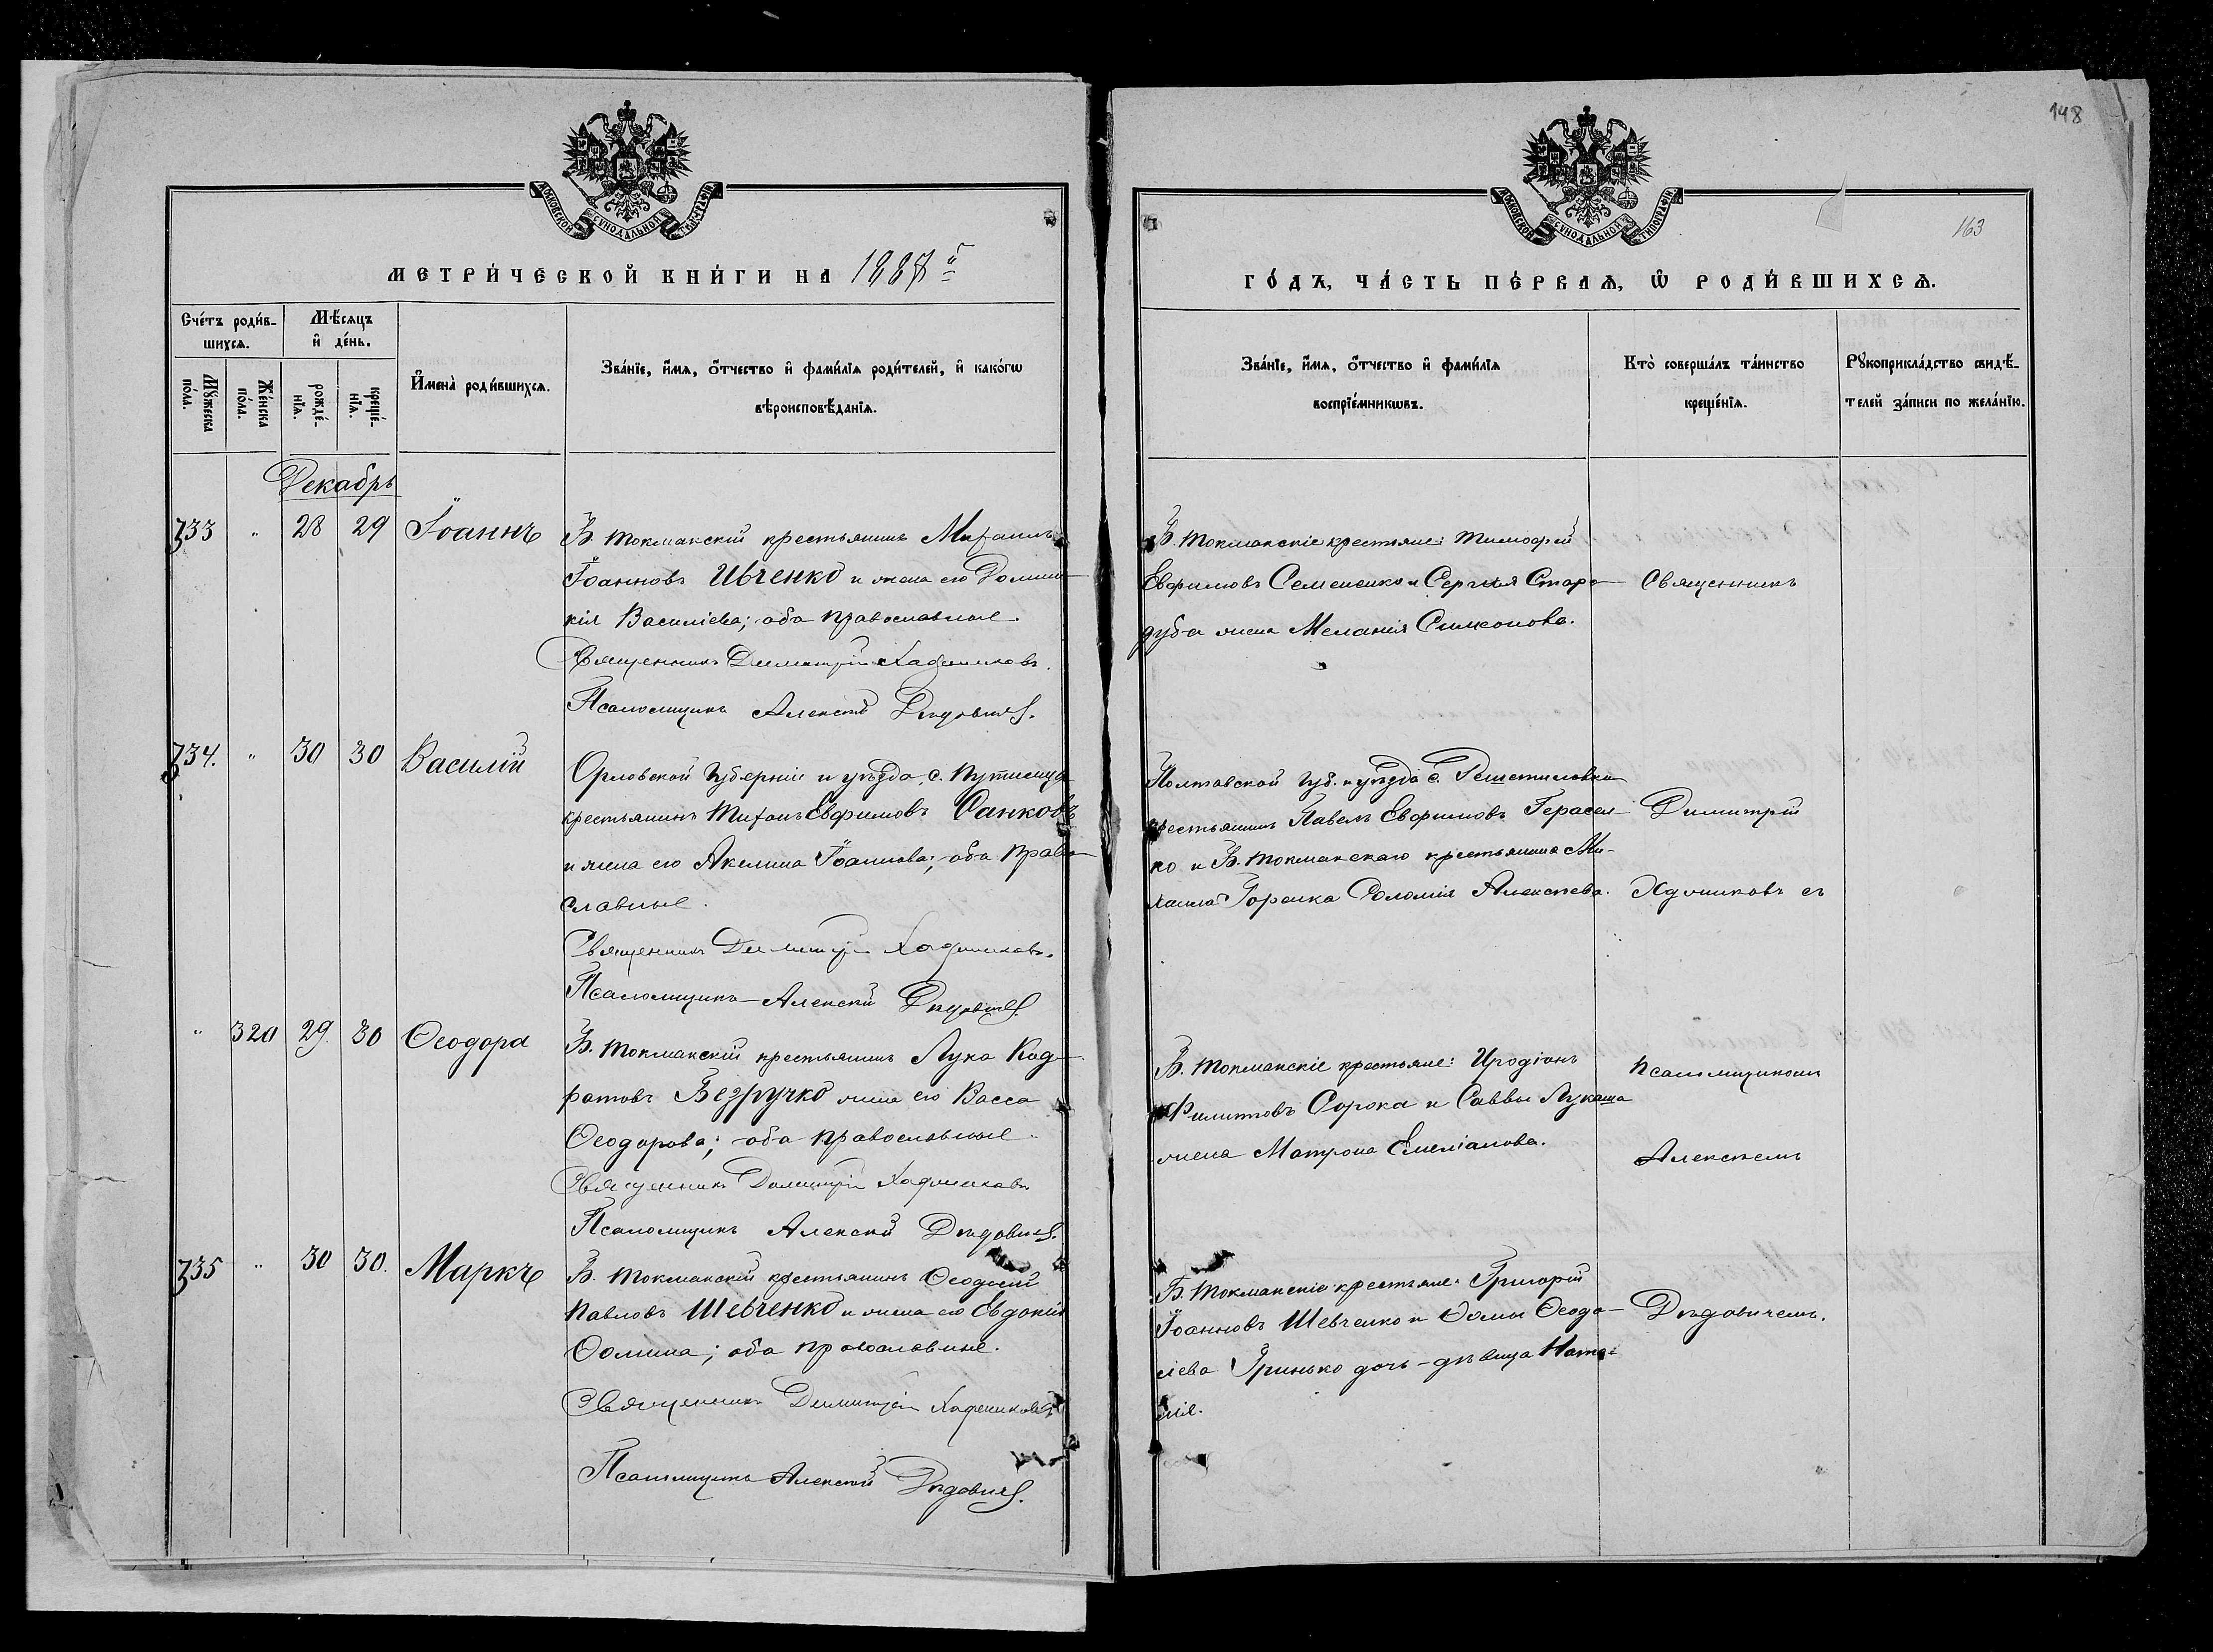 148
163
МОСКОВСКОЙ СѴНОДАЛЬНОЙ ТИПОГРАФІИ
МОСКОВСКОЙ СѴНОДАЛЬНОЙ ТИПОГРАФІИ
МЕТРИ́ЧЕСКОЙ КНИ́ГИ НА 1887й
ГО́ДЪ, ЧА́СТЬ ПЕ́РВАѦ, Ѡ РОДИ́ВШИХСѦ.
Счéтъ роди́в-
шихсѧ.
Мѣ́сѧцъ
и҆ де́нь.
Мꙋ́жеска
по́ла.
Же́нска
по́ла.
рожде́-
нїѧ.
креще́-
нїѧ.
И҆мена̀ роди́вшихсѧ.
Зва́нїе, и҆́мѧ, ѻ҆́тчество и҆ фами́лїѧ роди́телей, и҆ како́гѡ
вѣроисповѣ́данїѧ.
Зва́нїе, и҆́мѧ, ѻ҆́тчество и҆ фами́лїѧ
воспрїе́мникѡвъ.
Кто̀ соверша́лъ та́инство
креще́нїѧ.
Рꙋкоприкла́дство свидѣ́-
телей за́писи по жела́нїю.
Декабрь
733 " 28 29 Іоаннъ
Б. Токмакскій крестьянинъ Михаилъ
Іоанновъ Ивченко и жена его Домни-
кія Василіева; оба православные.
Священникъ Димитрій Хаджиковъ.
Псаломщикъ Алексѣй Дѣдовичъ.
Б. Токмакскіе крестьяне: Тимофей
Евфимовъ Семененко и Сергия Старо-
дуба жена Меланія Симеонова.
Священникъ
734. " 30 30 Василій
Орловской губерніи и уѣзда, с.
крестьянинъ Тихонъ Евфимовъ Санковъ
и жена его Акелина Іоаннова; оба право-
славные.
Священникъ Димитрій Хаджиковъ.
Псаломщикъ Алексѣй Дѣдовичъ.
Полтавской губ. и уѣзда с. Решетиловки
крестьянинъ Павелъ Евфимовъ Герасим-
ко и Б. Токмакскаго крестьянина Ми-
хаила Горенка Соломія Алексѣева.
Димитрій
Хаджиковъ съ
" 320 29 30 Ѳеодора
Б. Токмакскій крестьянинъ Лука Код-
ратовъ Безручко жена его Васса
Ѳеодорова; оба православные.
Священникъ Димитрій Хаджиковъ
Псаломщикъ Алексѣй Дѣдовичъ.
Б. Токмакскіе крестьяне: Иродіонъ
Филипповъ Сорока и Саввы Лукаша
жена Матрона Емеліанова.
псаломщикомъ
Алексѣемъ
735 " 30 30. Маркъ
Б. Токмакскій крестьянинъ Ѳеодосій
Павловъ Шевченко и жена его Евдокія
Ѳомина; оба православные.
Священникъ Димитрій Хаджиковъ
Псаломщикъ Алексѣй Дѣдовичъ.
Б. Токмакскіе крестьяне: Григорій
Іоанновъ Шевченко и Ѳомы Ѳеодо-
сіева Гринько дочь-дѣвица Ната-
лія.
Дѣдовичемъ.